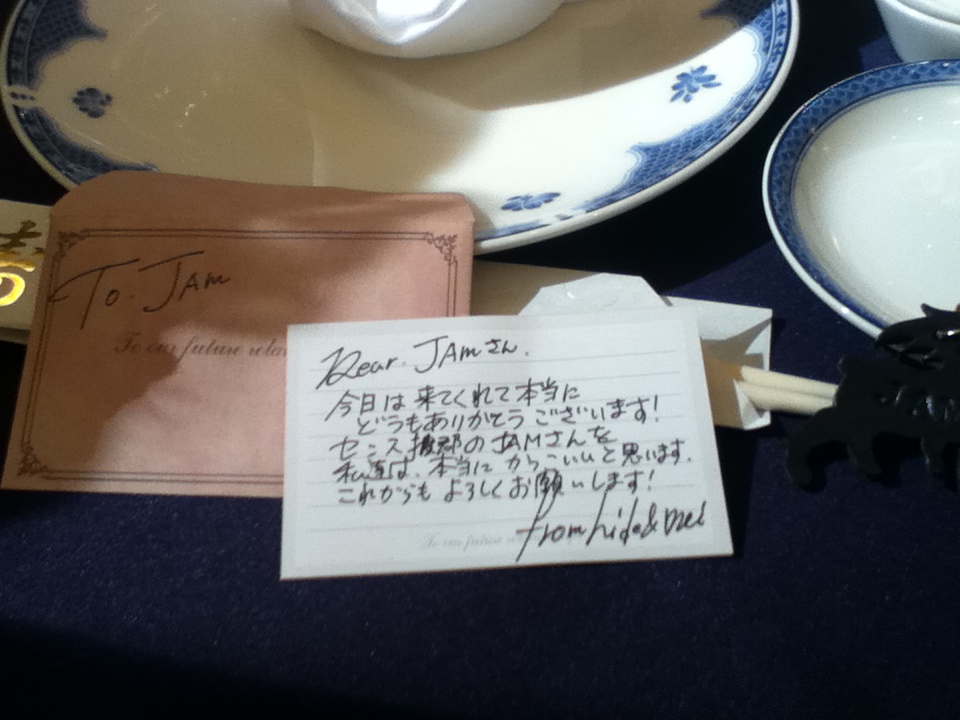 寿
To. JAM
To our future
Dear. JAMさん.
今日は来てくれて本当に
どうもありがとうございます!
センス抜群のJAMさんを
私達は、本当にかっこいいと思います.
これからもよろしくお願いします!
from hide &
To our future
JAM